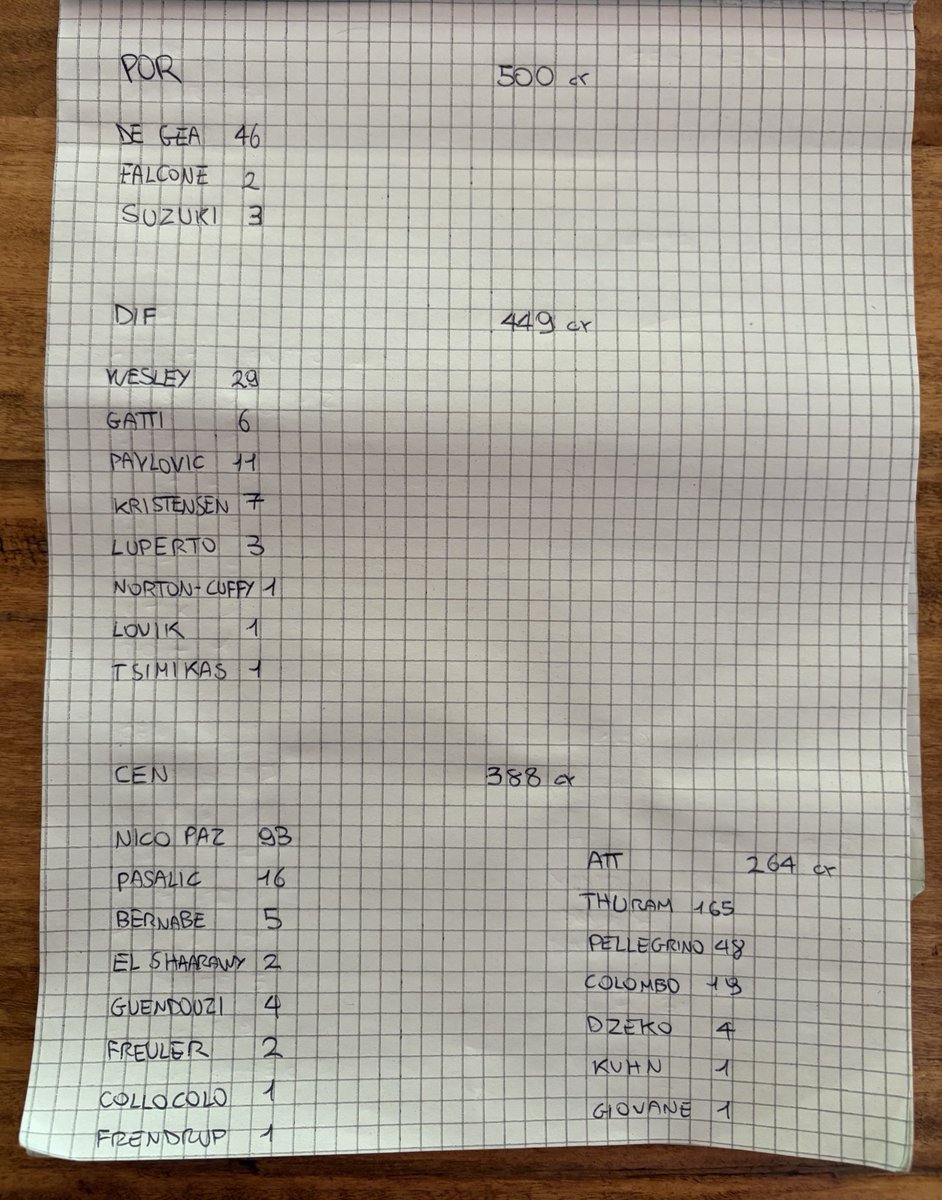 POR 500 cr
DE GEA 46
FALCONE 2
SUZUKI 3
DIF 449 cr
WESLEY 29
GATTI 6
PAVLOVIC 11
KRISTENSEN 7
LUPERTO 3
NORTON-CUFFY 1
LOVIK 1
TSIMIKAS 1
CEN 388 cr
NICO PAZ 93
PASALIC 16
BERNABE 5
EL SHAARAWY 2
GUENDOUZI 4
FREULER 2
COLLOCOLO 1
FRENDRUP 1
ATT 264 cr
THURAM 165
PELLEGRINO 48
COLOMBO 19
DZEKO 4
KUHN 1
GIOVANE 1